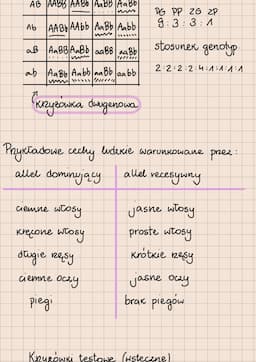 AB AABB AABb AaBB AaBb
Ab AABb AAbb AaBb Aabb
aB AaBB AaBb aaBB aaBb
ab AaBb Aabb aaBb aabb
9 : 3 : 3 : 1
stosunek genotyp.
2:2:2:2:4:1:1:1:1
krzyżówka dwugenowa
Przykładowe cechy ludzkie warunkowane przez:
allel dominujący allel recesywny
ciemne włosy jasne włosy
kręcone włosy proste włosy
długie rzęsy krótkie rzęsy
ciemne oczy jasne oczy
piegi brak piegów
Krzyżówki testowe (wsteczne)